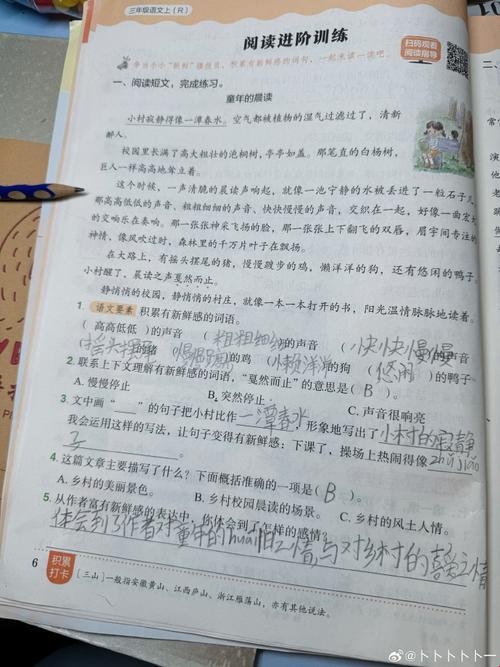 三年级语文上（R）
阅读进阶训练
扫码观看
阅读指导
争当小小“新鲜”播报员，积累有新鲜感的词句，一起来读一读吧。
一、阅读短文，完成练习。
童年的晨读
小村寂静得像一潭春水。空气都被植物的湿气过滤过了，清新
醉人。
校园里长满了高大粗壮的泡桐树，亭亭如盖。那笔直的白杨树，
巨人一样高高地耸立着。
这个时候，一声清脆的晨读声响起，就像一池宁静的水被丢进了一粒石子儿
那高高低低的声音、粗粗细细的声音、快快慢慢的声音，交织在一起，好像一曲宏大
的交响乐在奏响。那一张张神采飞扬的脸，那一张张上下翻飞的双唇，眉宇间专注的
神情，像风吹过时，森林里的千万片叶子在飘扬。
在大路上，有摇头摆尾的猪，慢慢踱步的鸡，懒洋洋的狗，还有悠闲的鸭子
小村醒了，晨读之声戛然而止。
静悄悄的校园，静悄悄的村庄，就像一本一本打开的书，阳光温情脉脉地读着。
1. 语文要素 积累有新鲜感的词语。
（高高低低）的声音 （粗粗细细）的声音 （快快慢慢）的声音
（摇头摆尾）的猪 （慢慢踱步）的鸡 （懒洋洋）的狗 （悠闲）的鸭子
2. 联系上下文理解有新鲜感的词语，“戛然而止”的意思是（B）。
A. 慢慢停止 B. 突然停止 C. 声音很响亮
3. 文中画“＿＿”的句子把小村比作一潭春水，形象地写出了小村的寂静
我会运用这样的写法，让句子变得有新鲜感：下课了，操场上热闹得像zhu jiao
子。
4. 这篇文章主要描写了什么？下面概括准确的一项是（B）。
A. 乡村的美丽景色。 B. 乡村校园晨读的场景。 C. 乡村的风土人情。
5. 从作者富有新鲜感的表达中，你体会到了怎样的感情？
体会到了作者对童年的huai旧之情，与对乡村的喜爱之情
6
积累
打卡
［三山］一般指安徽黄山、江西庐山、浙江雁荡山，亦有其他说法。
@卜卜卜卜卜一